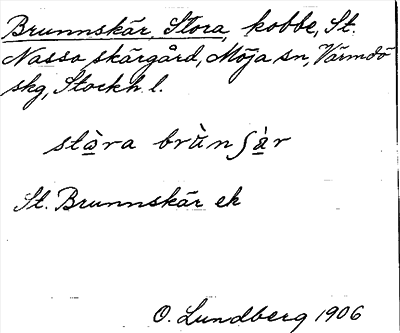 Brunnskär, Stora, kobbe, St.
Nassa skärgård, Möja sn, Värmdö
skg, Stockh. l.
stɑ̀̀ra brùnʃɑ̀r
St. Brunnskär ek
O. Lundberg 1906